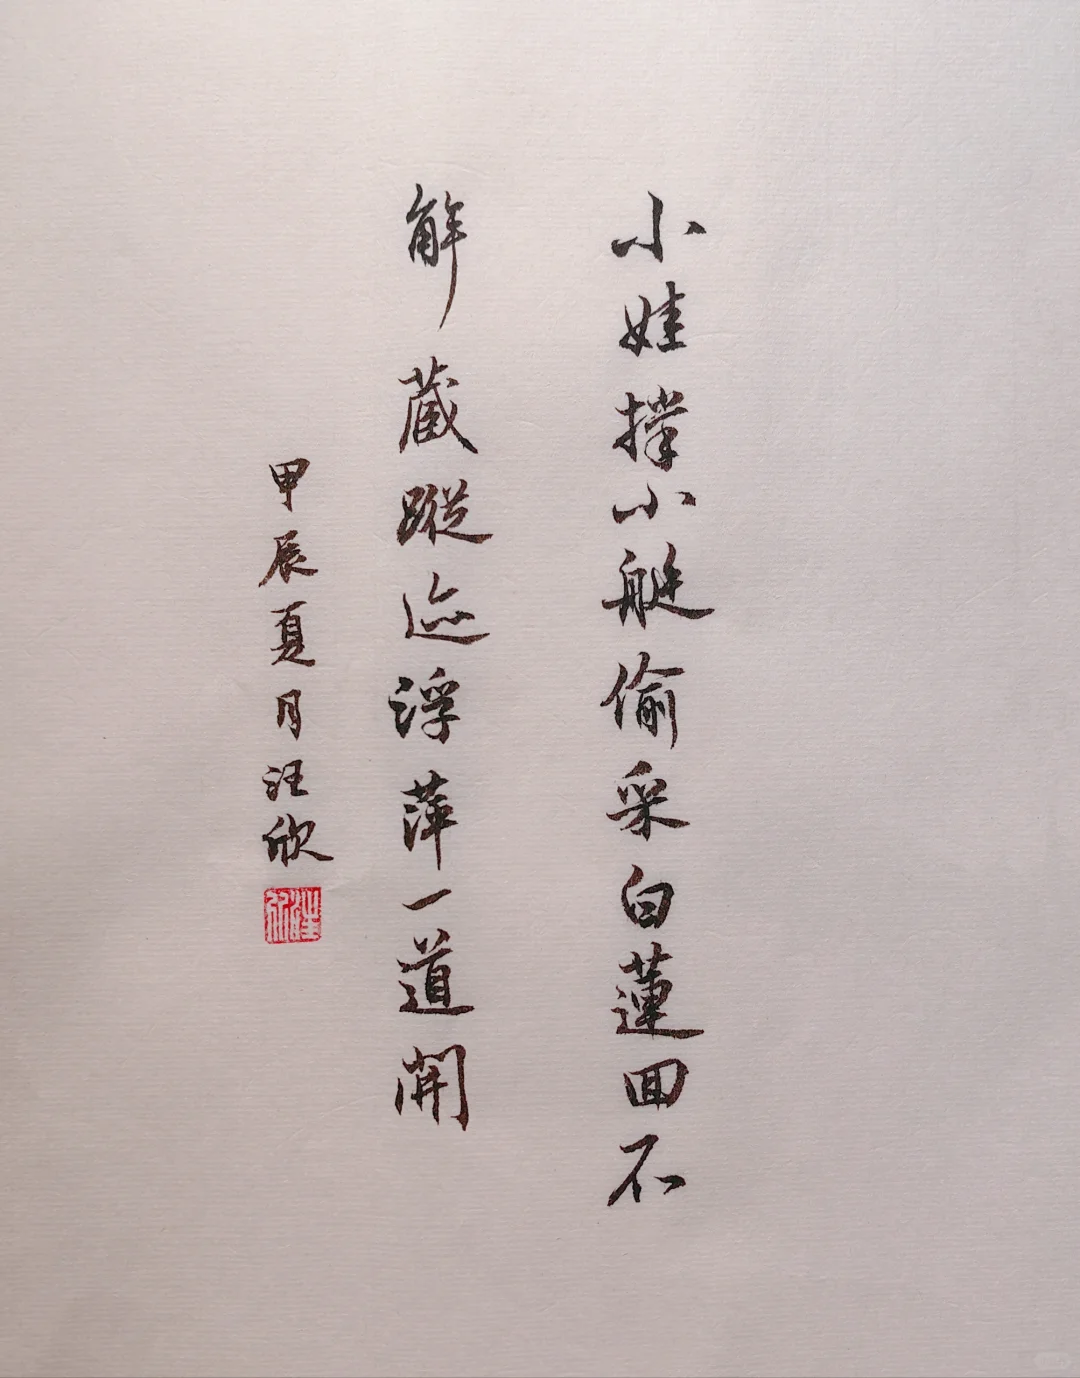 小娃撑小艇偷采白蓮回不
解藏蹤迹浮萍一道開
甲辰夏月汪欣